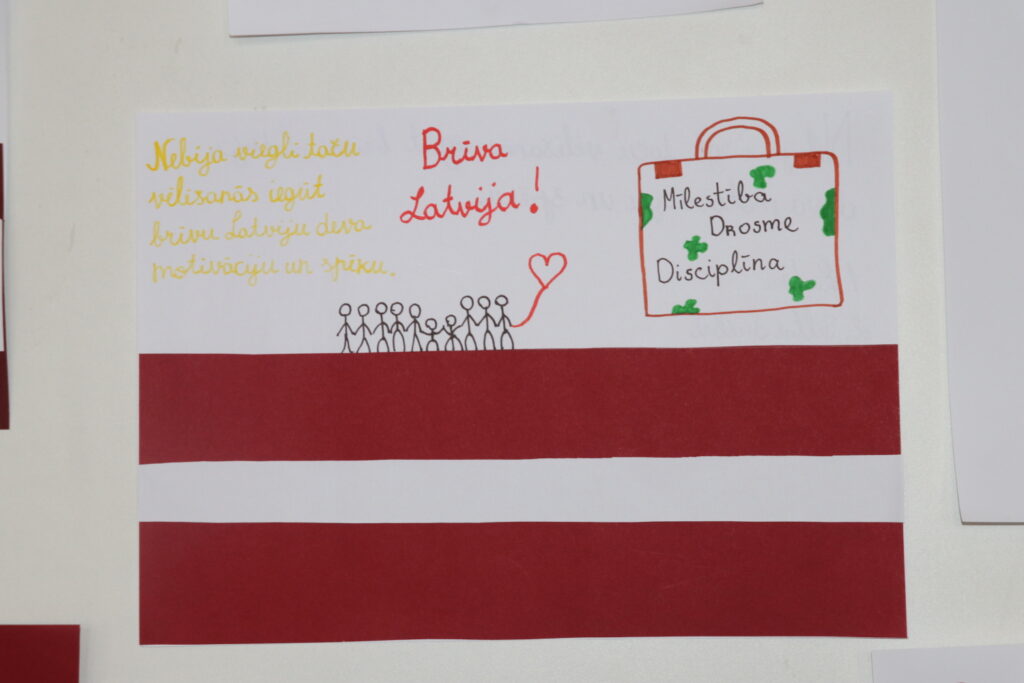 Nebija viegli taču
vēlēšanās iegūt
brīvu Latviju deva
motivāciju un spēku.
Brīva
Latvija!
Mīlestība
Drosme
Disciplīna